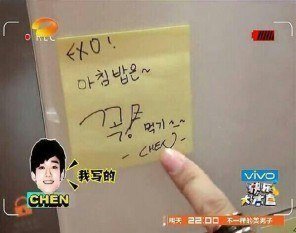 REC
EXO!
아침밥은~
꼭
먹기~
-CHEN-
我写的
CHEN
vivo
快乐大本营
22:00 不一样的美男子